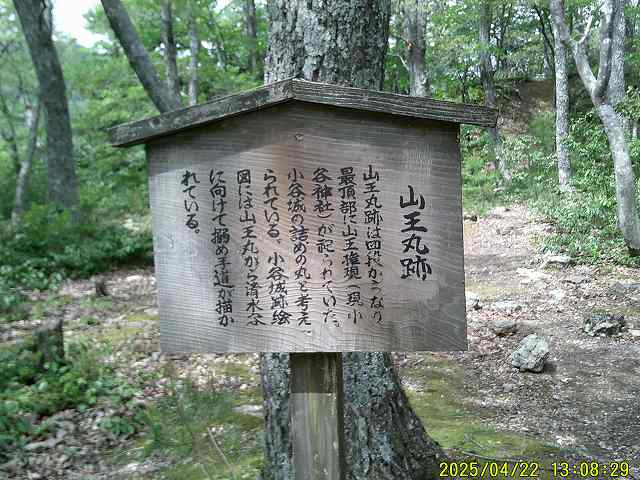 山王丸跡
山王丸跡は四段からなり、
最頂部に山王権現（現小
谷神社）が祀られていた。
小谷城の詰めの丸と考え
られている。小谷城跡絵
図には山王丸から清水谷
に向けて搦め手道が描か
れている。
2025/04/22 13:08:29